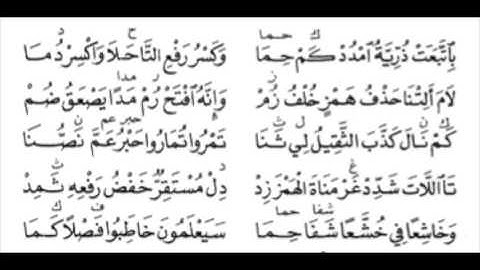 ك حما ح د
بِاتَّبَعَتْ ذُرِّيَّةُ امْدُدْ كَمْ حِمَا وَكَسْرُ رَفْعِ التَّا حَلَا وَاكْسِرْ دُمَا
ز ر مدا
لَامَ أَلَتْنَا حَذْفُ هَمْزٍ خُلْفُ زُمْ وَإِنَّهُ افْتَحْ رُمْ مَدًا يَصْعَقُ ضُمْ
ك ن ل ث حبر عم ن
كَمْ نَالَ كَذَّبَ الثَّقِيلُ لِي ثَنَا تَمْرُوا تُمَارُوا حَبْرُ عَمَّ نَصُّنَا
غ د ث
تَا اللَّاتَ شَدِّدْ غَرْ مَنَاةَ الْهَمْزَ زِدْ دِلْ مُسْتَقِرٌّ خَفْضُ رَفْعِهِ ثَمِدْ
شفا حما ف ك
وَخَاشِعًا فِي خُشَّعًا شَفَا حِمَا سَيَعْلَمُونَ خَاطِبُوا فَصْلًا كَمَا